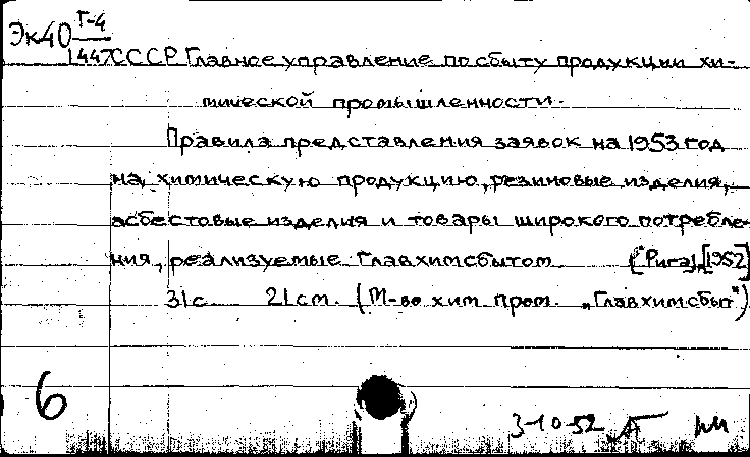 Эк40 Г-4
447 СССР Главное управление по сбыту продукции хи-
мической промышленности.
Правила представления заявок на 1953 год
на химическую продукцию, резиновые изделия,
асбестовые изделия и товары широкого потребле-
ния, реализуемые Главхимсбытом [Рига], [1952]
31 с. 21 см. (М-во хим. пром. „Главхимсбыт")
6
3-10-52